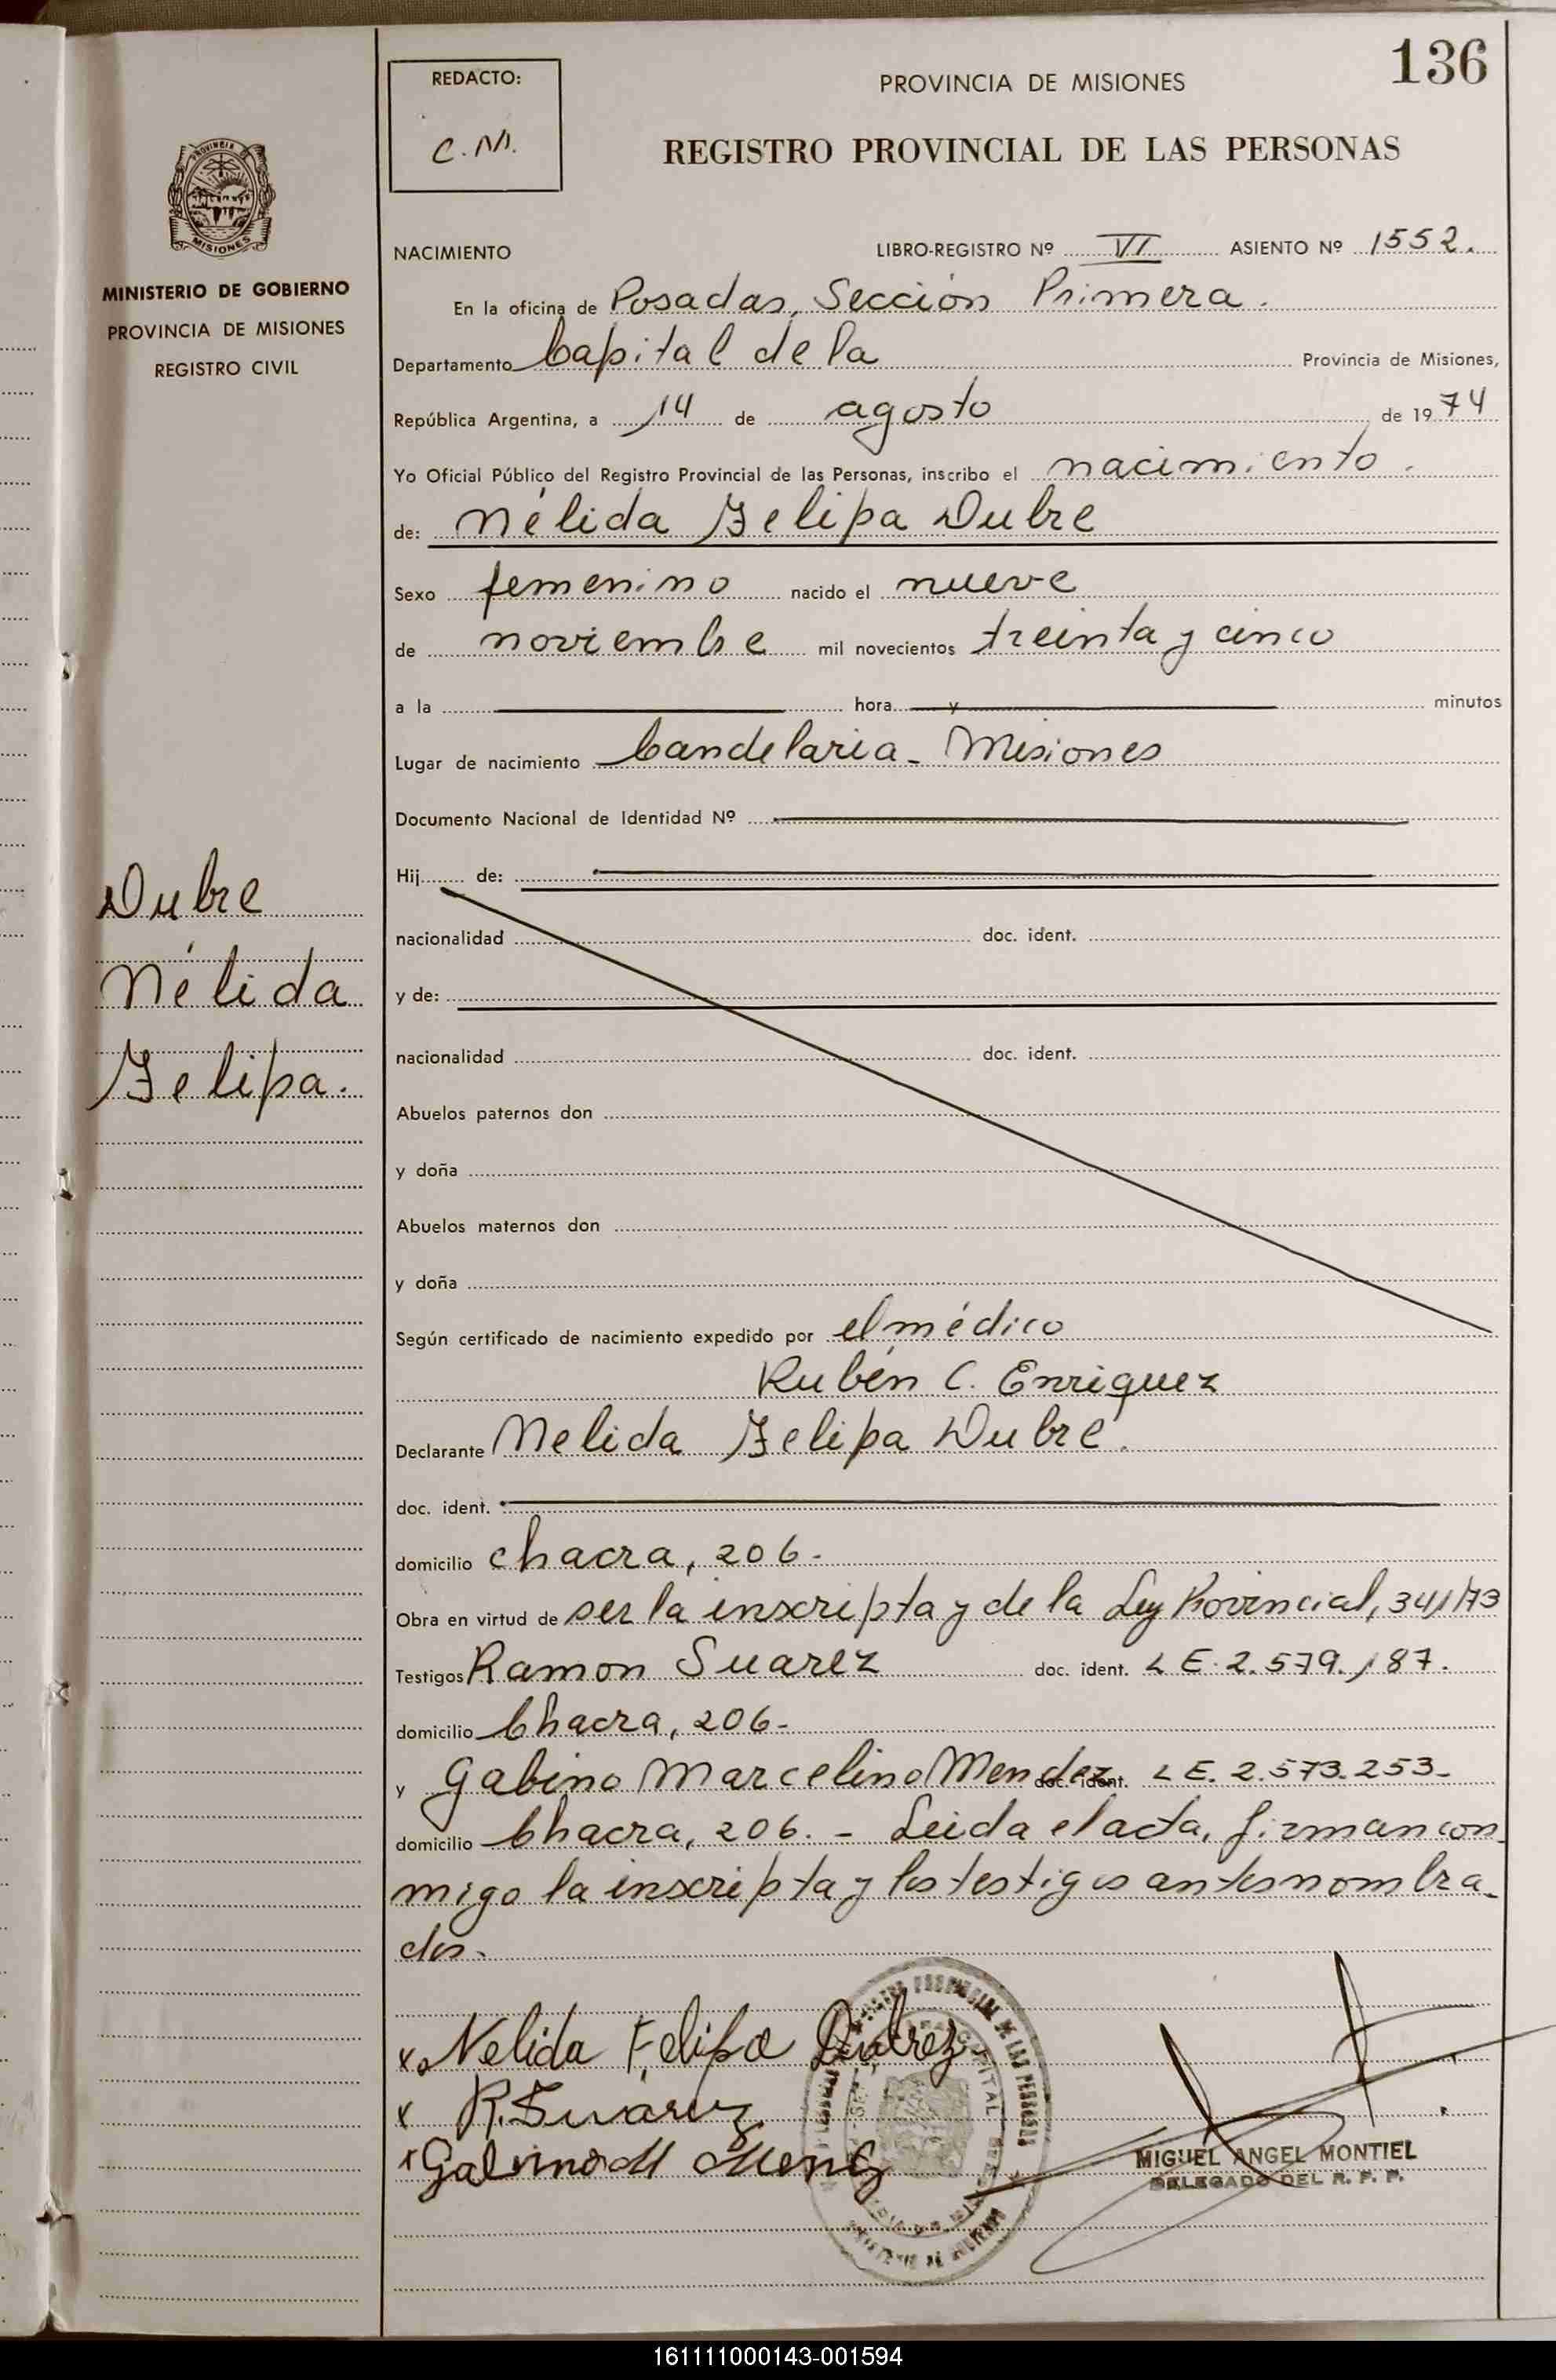 136
REDACTO:
C. M.
PROVINCIA DE MISIONES
REGISTRO PROVINCIAL DE LAS PERSONAS
PROVINCIA DE
MISIONES
MINISTERIO DE GOBIERNO
PROVINCIA DE MISIONES
REGISTRO CIVIL
NACIMIENTO LIBRO-REGISTRO Nº VI ASIENTO Nº 1552.
En la oficina de Posadas, Sección Primera.
Departamento Capital de la Provincia de Misiones,
República Argentina, a 14 de agosto de 1974
Yo Oficial Público del Registro Provincial de las Personas, inscribo el nacimiento.
de: Nélida Felipa Dubre
Sexo femenino nacido el nueve
de noviembre mil novecientos treinta y cinco
a la hora y minutos
Lugar de nacimiento Candelaria - Misiones
Documento Nacional de Identidad Nº
Hij de:
nacionalidad doc. ident.
y de:
nacionalidad doc. ident.
Abuelos paternos don
y doña
Abuelos maternos don
y doña
Dubre
Nélida
Felipa.
Según certificado de nacimiento expedido por el médico
Rubén C. Enriquez
Declarante Nelida Felipa Dubre.
doc. ident.
domicilio chacra, 206.
Obra en virtud de ser la inscripta y de la Ley Provincial, 341/73
Testigos Ramon Suarez doc. ident. L E. 2.579.187.
domicilio Chacra, 206-
y Gabino Marcelino Mendez doc. ident. L E. 2.573.253-
domicilio Chacra, 206. - Leida el acta, firman con
migo la inscripta y los testigos antes nombra-
dos.
x Nelida Felipa Dubrez
x R. Suarez
x Gabino M
MIGUEL ANGEL MONTIEL
DELEGADO DEL R. P. P.
161111000143-001594